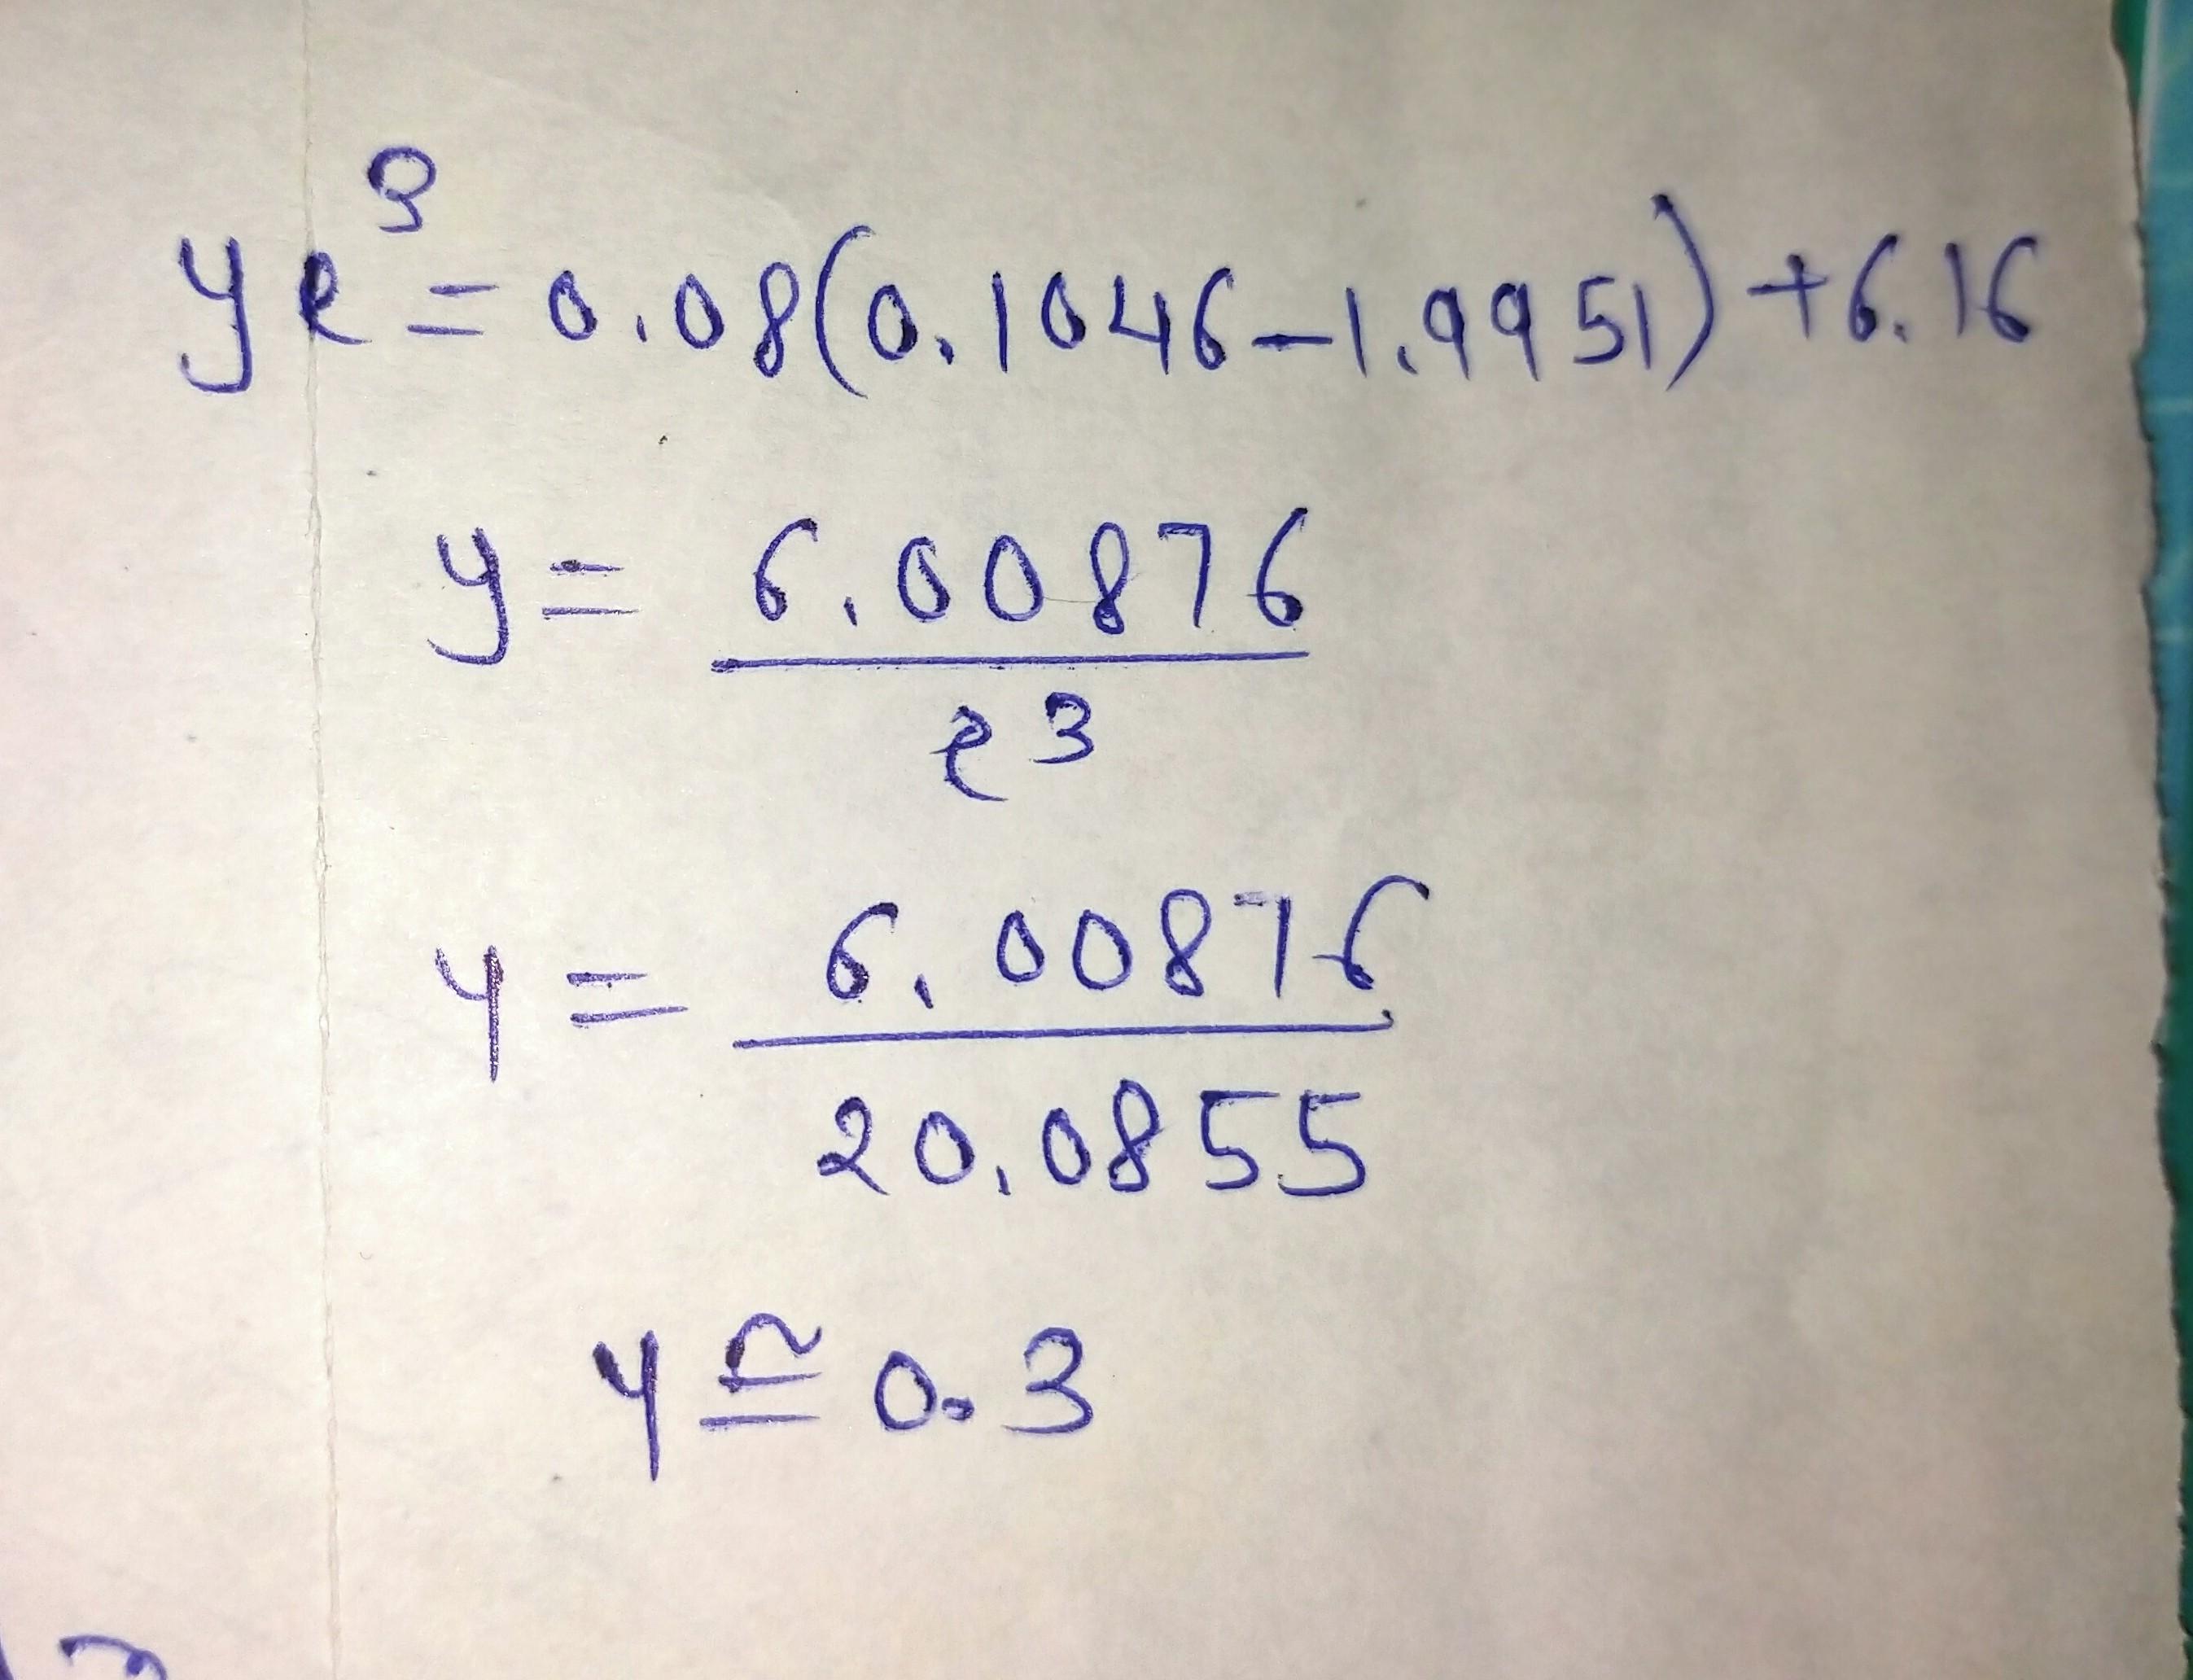 ye³ = 0.08(0.1046-1.9951)+6.16
y = 6.00876
e³
y = 6.00876
20.0855
y ≅ 0.3